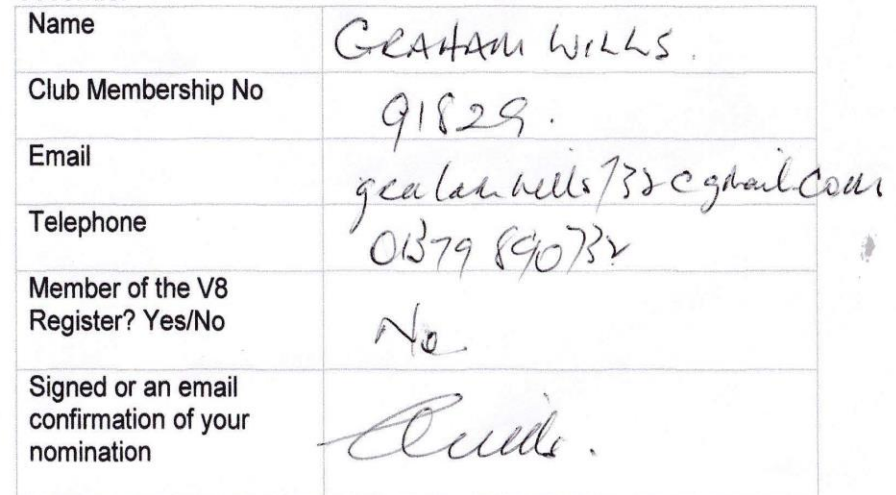 Name
GRAHAM WILLS.
Club Membership No
91829.
Email
grahamwills732@gmail.com
Telephone
01379 890732
Member of the V8
Register? Yes/No
No
Signed or an email
confirmation of your
nomination